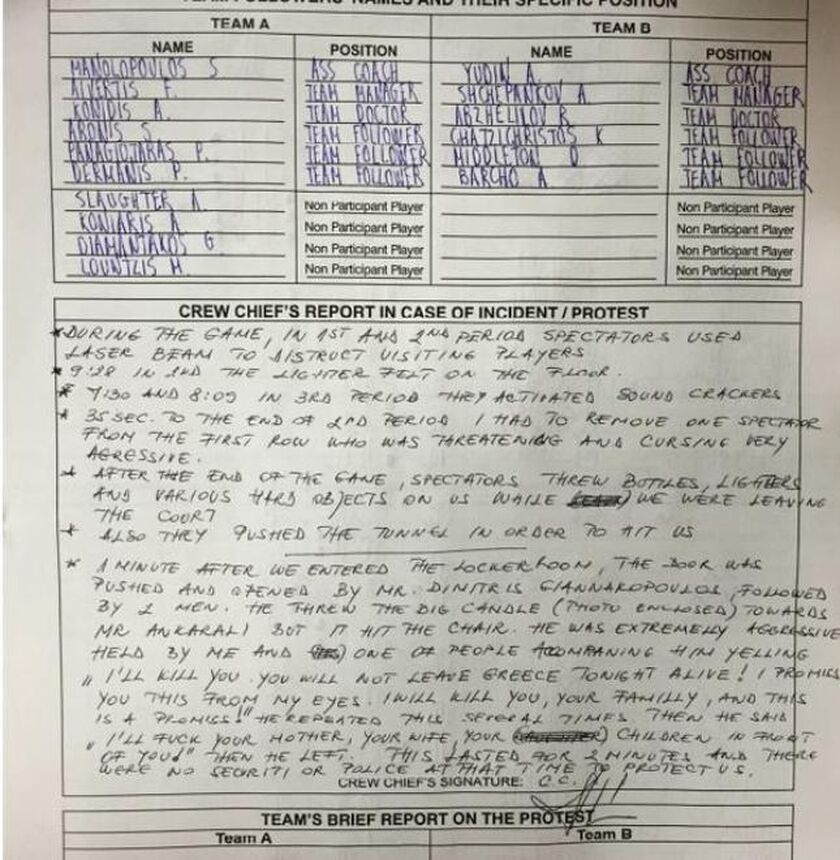 TEAM FOLLOWERS' NAMES AND THEIR SPECIFIC POSITION
TEAM A TEAM B
NAME POSITION NAME POSITION
MANOLOPOULOS S ASS COACH YUDIN A. ASS COACH
ALVERTIS F. TEAM MANAGER SHCHEPANKOV A TEAM MANAGER
KONIDIS A. TEAM DOCTOR ABZHELILOV R. TEAM DOCTOR
ARONIS S. TEAM FOLLOWER CHATZICHRISTOS K TEAM FOLLOWER
PANAGIOTARAS P. TEAM FOLLOWER MIDDLETON D TEAM FOLLOWER
DERMANIS P. TEAM FOLLOWER BARCHO A TEAM FOLLOWER
SLAUGHTER A. Non Participant Player Non Participant Player
KONIARIS A Non Participant Player Non Participant Player
DIAMANTAKOS G Non Participant Player Non Participant Player
LOUNTZIS M. Non Participant Player Non Participant Player
CREW CHIEF'S REPORT IN CASE OF INCIDENT / PROTEST
* DURING THE GAME, IN 1ST AND 2ND PERIOD SPECTATORS USED
LASER BEAM TO DISTRUCT VISITING PLAYERS
* 9:28 IN 2ND THE LIGHTER FELT ON THE FLOOR.
* 7:30 AND 8:09 IN 3RD PERIOD THEY ACTIVATED SOUND CRACKERS
* 35 SEC. TO THE END OF 2ND PERIOD I HAD TO REMOVE ONE SPECTATOR
FROM THE FIRST ROW WHO WAS THREATENING AND CURSING VERY
AGRESSIVE.
* AFTER THE END OF THE GAME, SPECTATORS THREW BOTTLES, LIGHTERS
AND VARIOUS HARD OBJECTS ON US WHILE WE WERE LEAVING
THE COURT
* ALSO THEY PUSHED THE TUNNEL IN ORDER TO HIT US
* 1 MINUTE AFTER WE ENTERED THE LOCKERROOM, THE DOOR WAS
PUSHED AND OPENED BY MR. DIMITRIS GIANNAKOPOULOS, FOLLOWED
BY 2 MEN. HE THREW THE BIG CANDLE (PHOTO ENCLOSED) TOWARDS
MR ANKARALI BUT IT HIT THE CHAIR. HE WAS EXTREMELY AGGRESSIVE
HELD BY ME AND ONE OF PEOPLE ACOMPANING HIM YELLING
„ I'LL KILL YOU. YOU WILL NOT LEAVE GREECE TONIGHT ALIVE! I PROMISS
YOU THIS FROM MY EYES. I WILL KILL YOU, YOUR FAMILLY, AND THIS
IS A PROMISS!" HE REPEATED THIS SEVERAL TIMES. THEN HE SAID
„ I'LL FUCK YOUR MOTHER, YOUR WIFE, YOUR CHILDREN IN FRONT
OF YOU!" THEN HE LEFT. THIS LASTED FOR 2 MINUTES AND THERE
WERE NO SECURITI OR POLICE AT THAT TIME TO PROTECT US.
CREW CHIEF'S SIGNATURE: C.C.
TEAM'S BRIEF REPORT ON THE PROTEST
Team A Team B